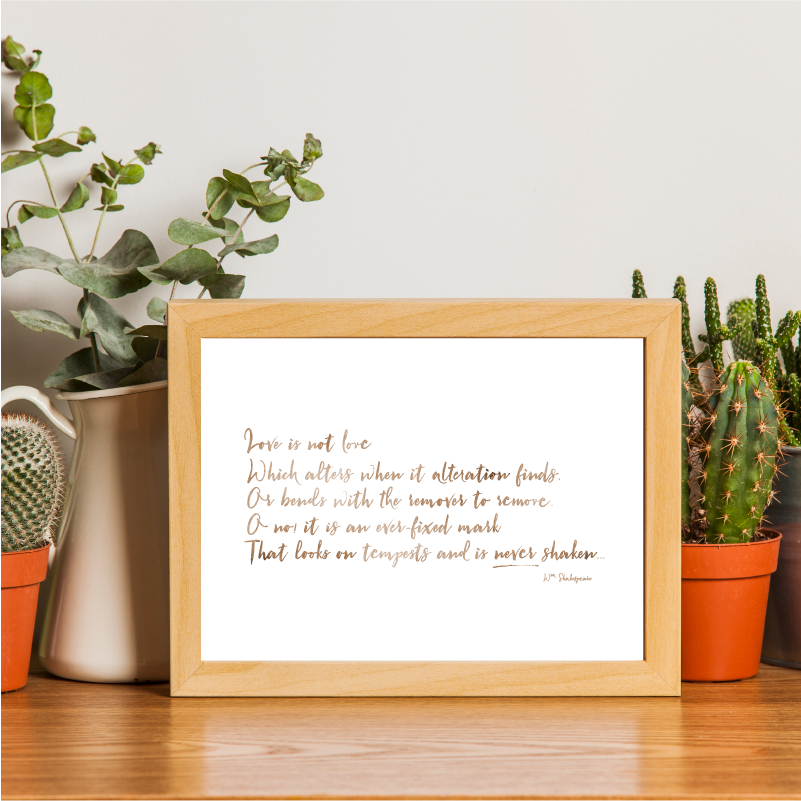 Love is not love
Which alters when it alteration finds,
Or bends with the remover to remove.
O no! it is an ever-fixed mark
That looks on tempests and is never shaken...
Wm. Shakespeare